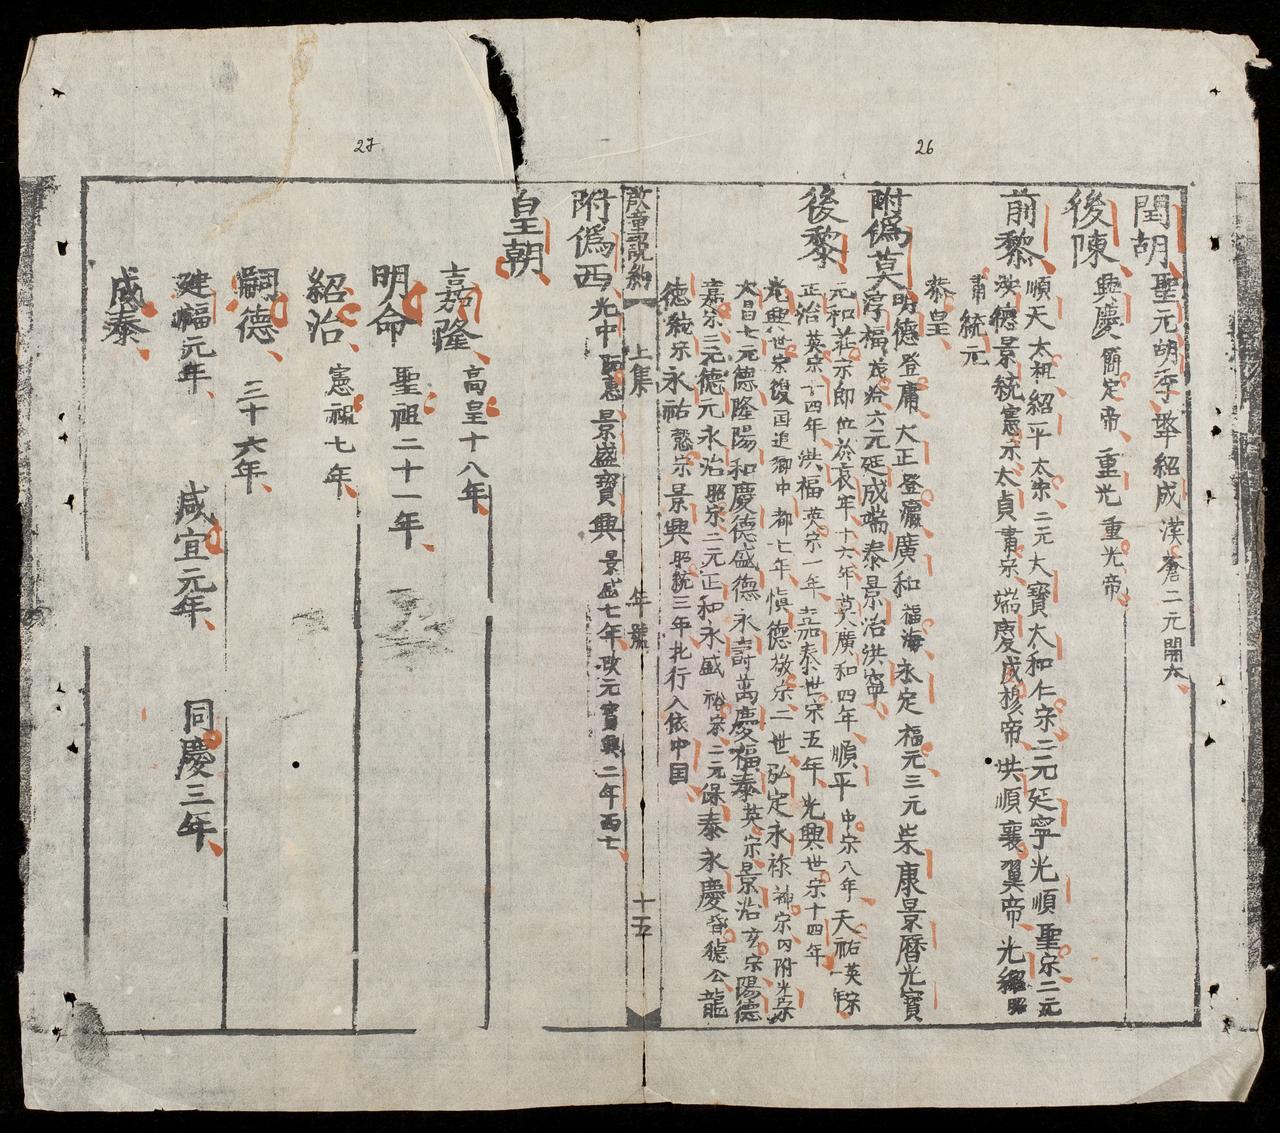 26
閏胡 聖元胡季犛紹成漢蒼二元開大
後陳 興慶簡定帝重光重光帝
前黎 順天太祖紹平太宗二元大寶太和仁宗二元延寧光順聖宗二元
洪德景統憲宗太貞肅宗端慶威穆帝洪順襄翼帝光紹昭
肅統元
恭皇
附僞莫 明德登庸大正登瀛廣和福海永定福元三元柴康景曆光寶
淳福茂洽六元延成端泰景治洪寧
後黎 元和莊宗即位於哀牢十六年莫廣和四年順平中宗八年天祐英宗一年
正治英宗十四年洪福英宗一年嘉泰世宗五年光興世宗十四年
光興世宗復国追卿中都七年慎德敬宗二世弘定永祚神宗內附光宗
大昌七元德隆陽和慶德盛德永壽萬慶福泰英宗景治玄宗陽德
嘉宗三元德元永治昭宗二元正和永盛裕宗二元保泰永慶昏德公龍
德純宗永祐懿宗景興昭統三年北行入依中国
啟童說約 上集 年號 十五
27
附僞西 光中阮惠景盛寶興景盛七年改元寶興二年西亡
皇朝
嘉隆高皇十八年
明命聖祖二十一年
紹治憲祖七年
嗣德三十六年
建福元年 咸宜元年 同慶三年
成泰